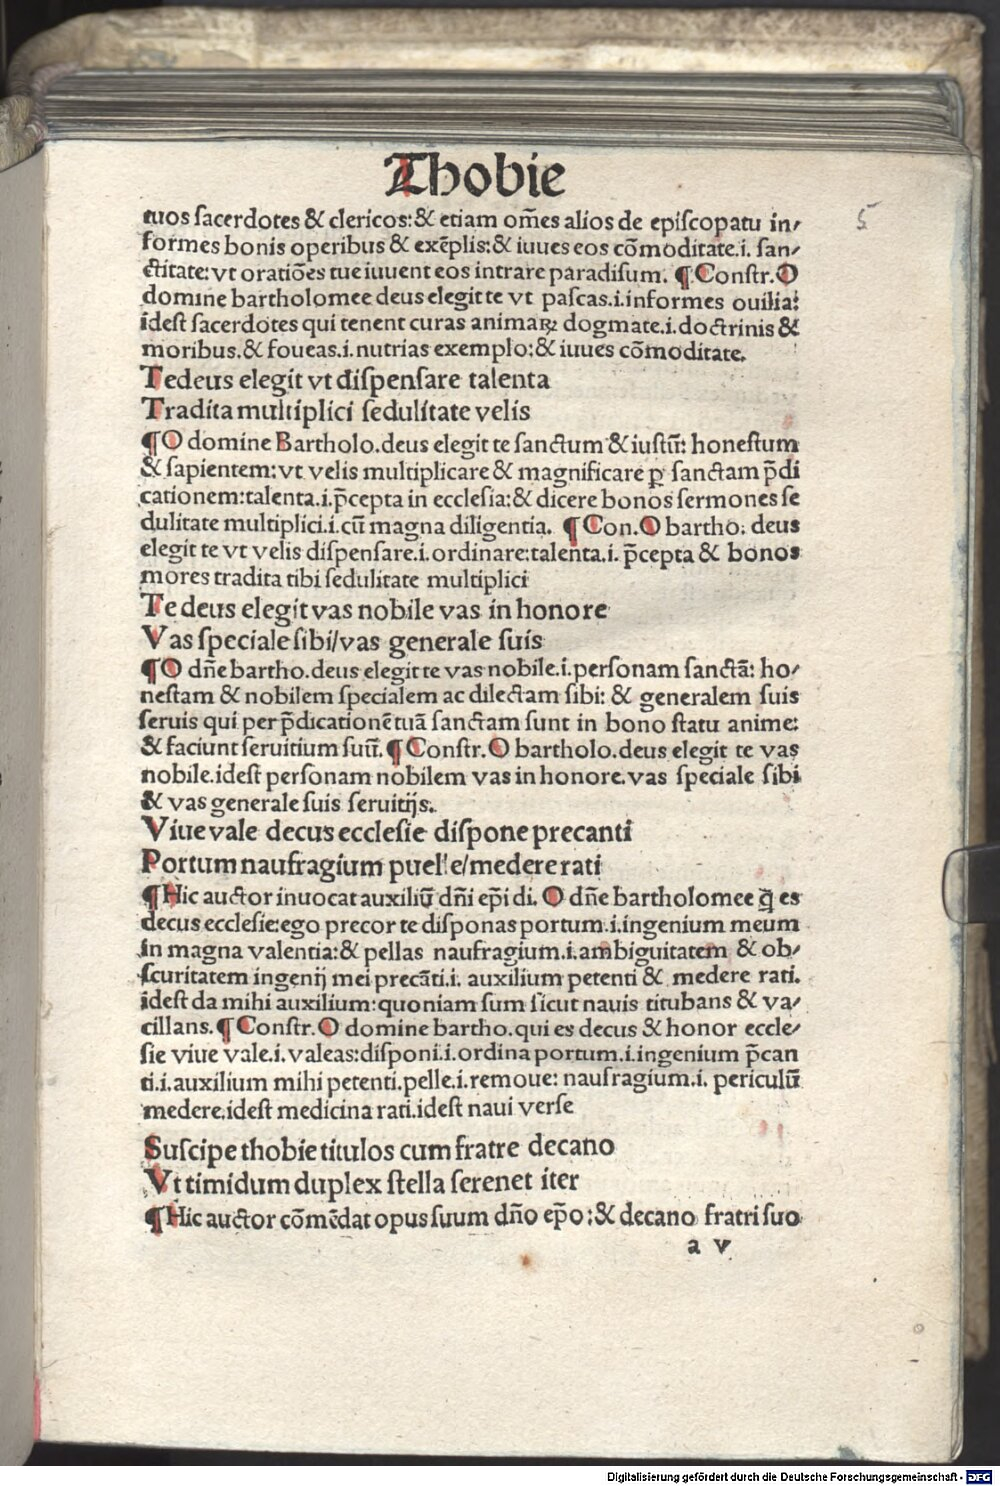 Thobie
5
tuos sacerdotes & clericos: & etiam om̄es alios de episcopatu in/
formes bonis operibus & exēplis: & iuues eos cōmoditate.i. san/
ctitate: vt oratiōes tue iuuent eos intrare paradisum. ¶ Constr. O
domine bartholomee deus elegit te vt pascas.i.informes ouilia:
idest sacerdotes qui tenent curas animaꝝ dogmate.i.doctrinis &
moribus.& foueas.i.nutrias exemplo: & iuues cōmoditate.
Te deus elegit vt dispensare talenta
Tradita multiplici sedulitate velis
¶ O domine Bartholo.deus elegit te sanctum & iustū: honestum
& sapientem: vt velis multiplicare & magnificare ꝑ sanctam p̄di
cationem: talenta.i.p̄cepta in ecclesia: & dicere bonos sermones se
dulitate multiplici.i.cū magna diligentia. ¶ Con. O bartho: deus
elegit te vt velis dispensare.i.ordinare: talenta.i. p̄cepta & bonos
mores tradita tibi sedulitate multiplici
Te deus elegit vas nobile vas in honore
Vas speciale sibi/vas generale suis
¶ O dn̄e bartho.deus elegit te vas nobile.i.personam sanctā: ho/
nestam & nobilem specialem ac dilectam sibi: & generalem suis
seruis qui per p̄dicationē tuā sanctam sunt in bono statu anime:
& faciunt seruitium suū. ¶ Constr. O bartholo.deus elegit te vas
nobile.idest personam nobilem vas in honore. vas speciale sibi
& vas generale suis seruitijs.
Viue vale decus ecclesie dispone precanti
Portum naufragium puelle/medere rati
¶ Hic auctor inuocat auxiliū dn̄i ep̄i di. O dn̄e bartholomee q̄ es
decus ecclesie: ego precor te disponas portum.i.ingenium meum
in magna valentia: & pellas naufragium.i.ambiguitatem & ob/
scuritatem ingenij mei precāti.i. auxilium petenti & medere rati.
idest da mihi auxilium: quoniam sum sicut nauis titubans & va/
cillans. ¶ Constr. O domine bartho.qui es decus & honor eccle/
sie viue vale.i.valeas: disponi.i.ordina portum.i.ingenium p̄can
ti.i.auxilium mihi petenti.pelle.i.remoue: naufragium.i. periculū
medere.idest medicina rati.idest naui verse
Suscipe thobie titulos cum fratre decano
Vt timidum duplex stella serenet iter
¶ Hic auctor cōmēdat opus suum dn̄o ep̄o: & decano fratri suo
a v
Digitalisierung gefördert durch die Deutsche Forschungsgemeinschaft - DFG